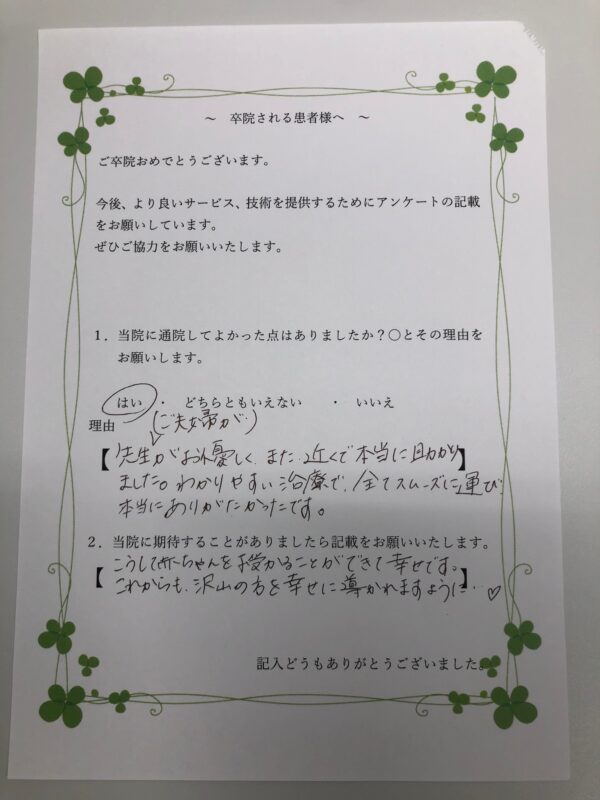 ～ 卒院される患者様へ ～
ご卒院おめでとうございます。
今後、より良いサービス、技術を提供するためにアンケートの記載
をお願いしています。
ぜひご協力をお願いいたします。
1．当院に通院してよかった点はありましたか？〇とその理由を
お願いします。
はい ・ どちらともいえない ・ いいえ
理由 (ご夫婦が)
【先生がお優しく、また、近くで本当に助かり】
ました。わかりやすい治療で、全てスムーズに運び
本当にありがたかったです。
2．当院に期待することがありましたら記載をお願いいたします。
【こうして赤ちゃんを授かることができて幸せです。
これからも、沢山の方を幸せに導かれますように…】♡
記入どうもありがとうございました。